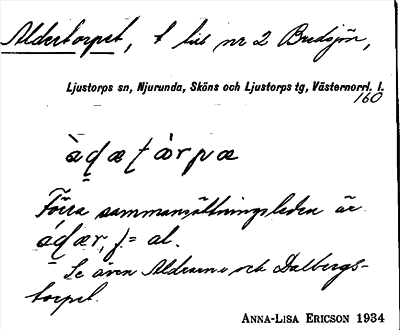 Aldertorpet, t hus nr 2 Bredsjön,
Ljustorps sn, Njurunda, Sköns och Ljustorps tg, Västernorrl. l.
160
àḍætàrpæ
Förra sammansättningsleden är
áḍær, f = al.
Se även Aldrarna och Dalbergs-
torpet.
ANNA-LISA ERICSON 1934